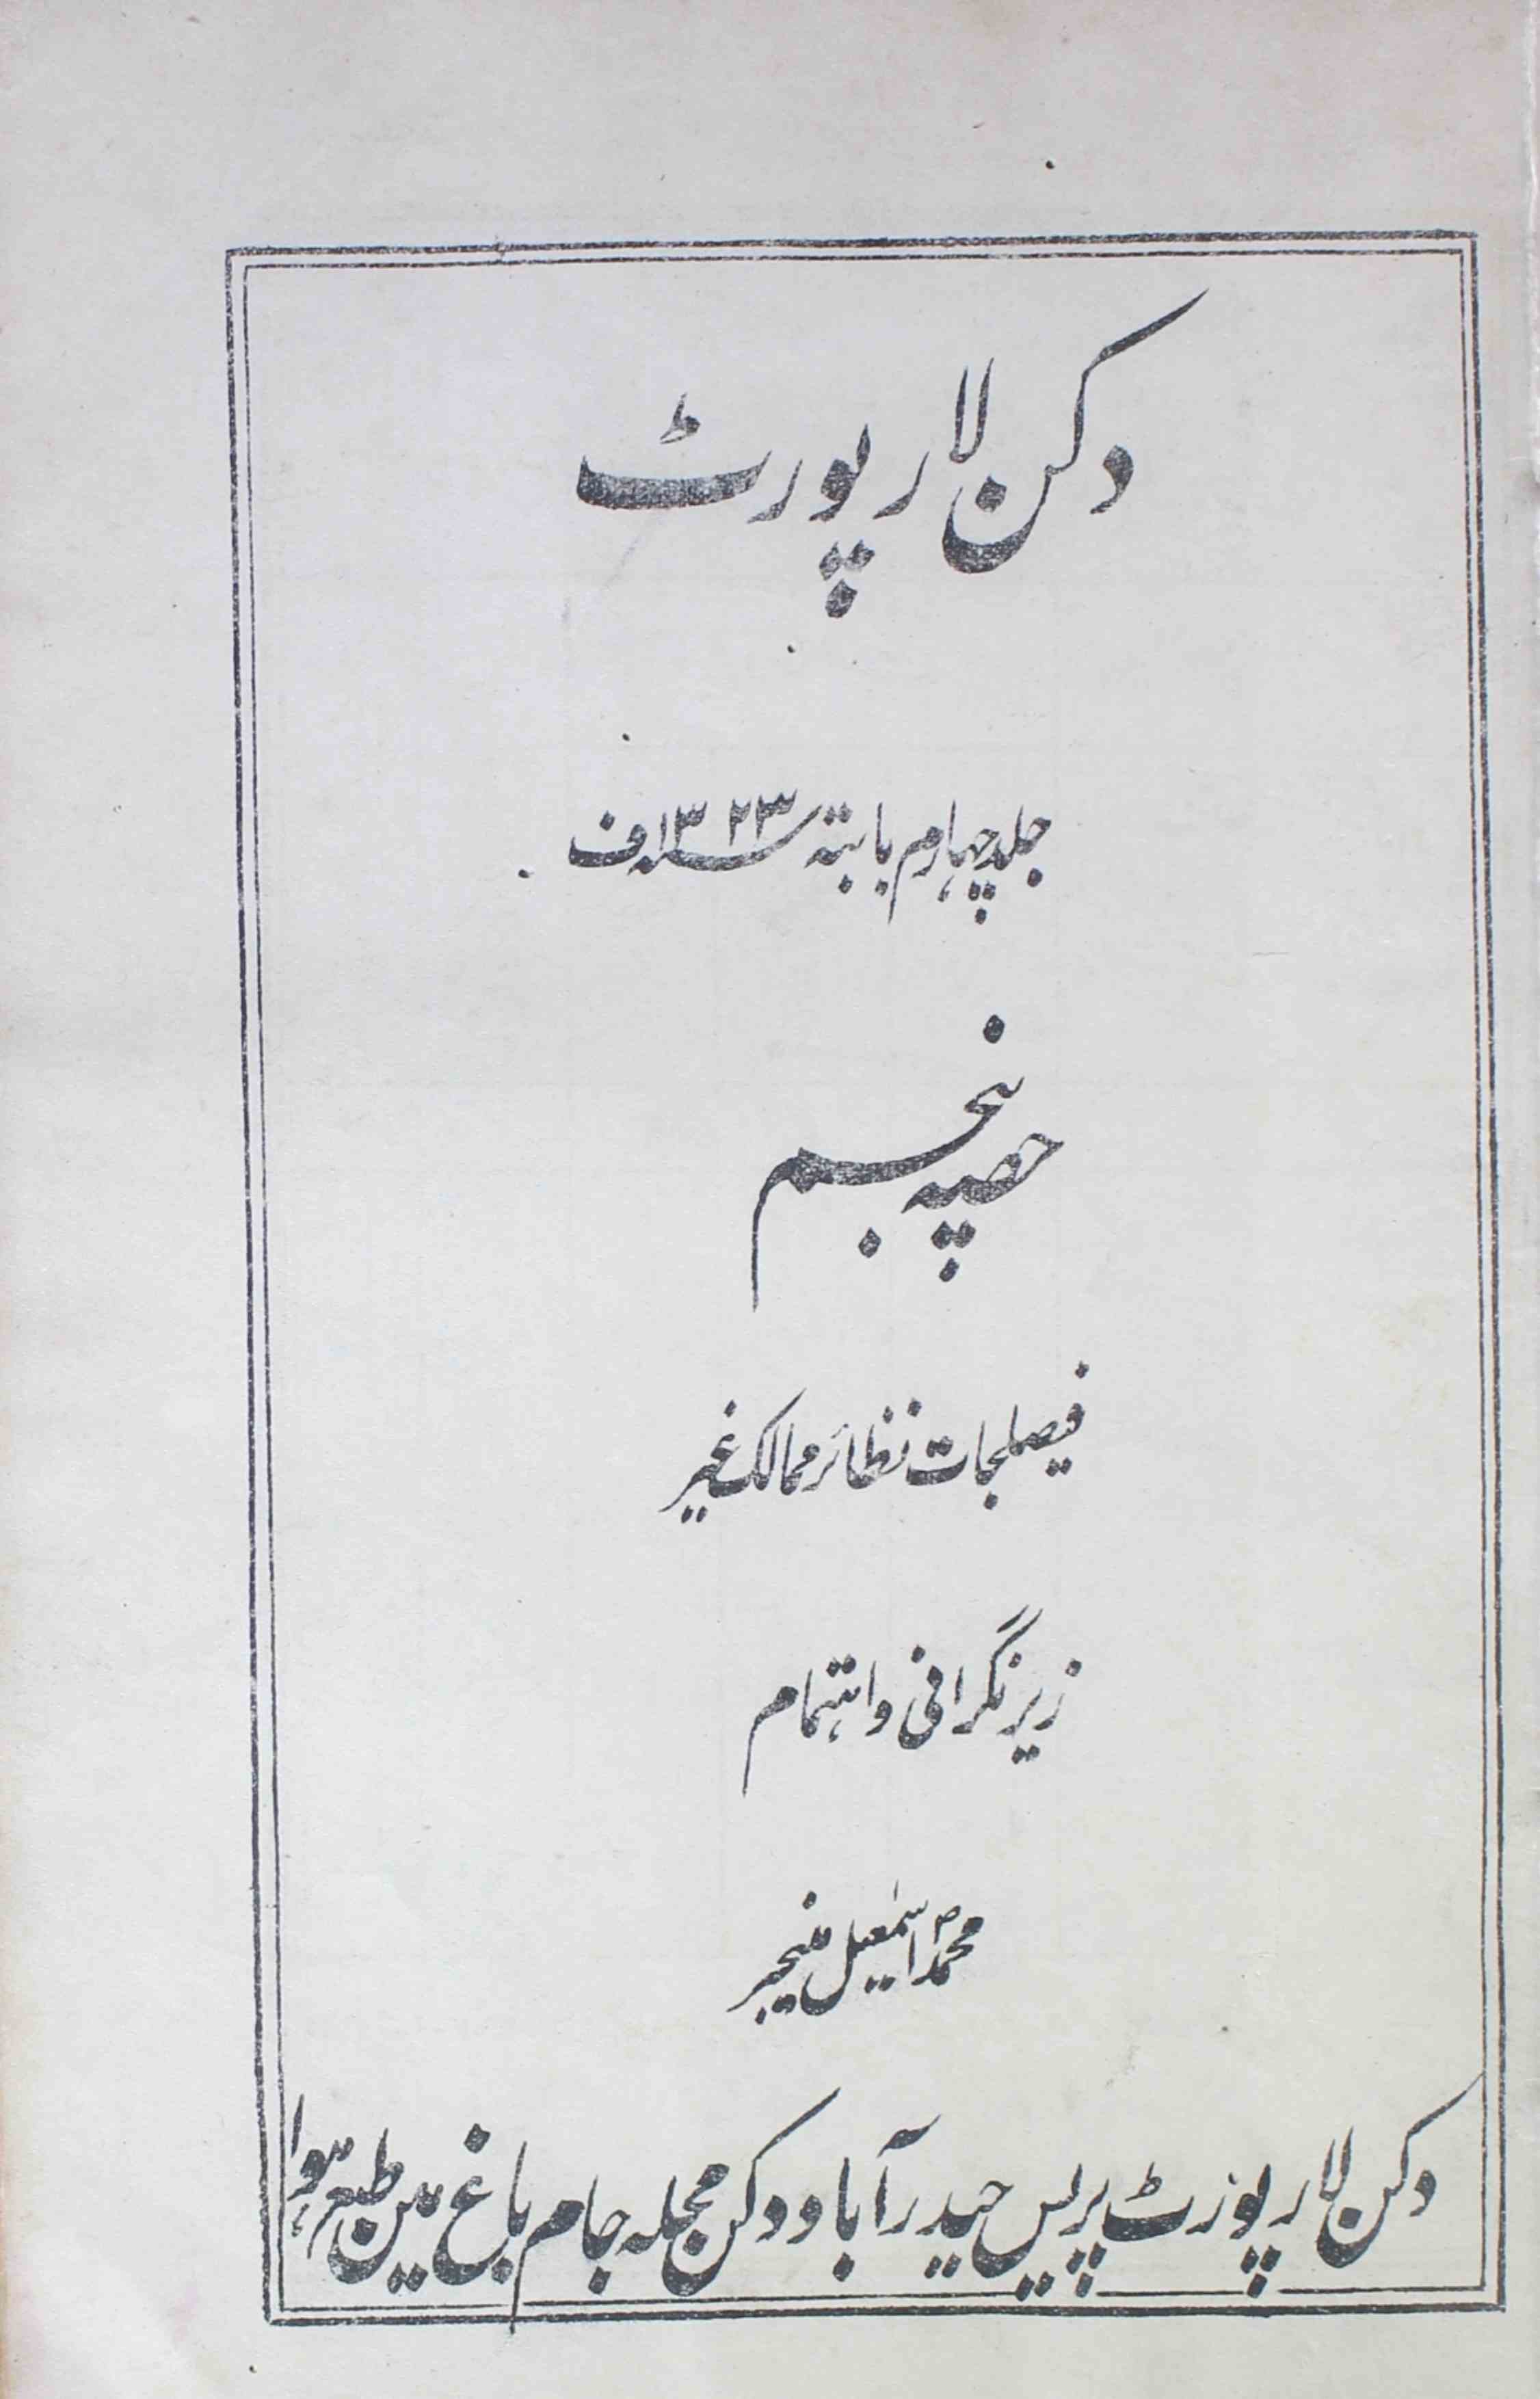 دکن لا رپورٹ
جلد چہارم بابتہ سنہ ۱۳۲۳ف
حصہ پنجم
فیصلجات نظائر ممالک غیر
زیر نگرانی و اہتمام
محمد اسمٰعیل منیجر
دکن لا رپورٹ پریس حیدرآباد دکن محلہ جام باغ میں طبع ہوا